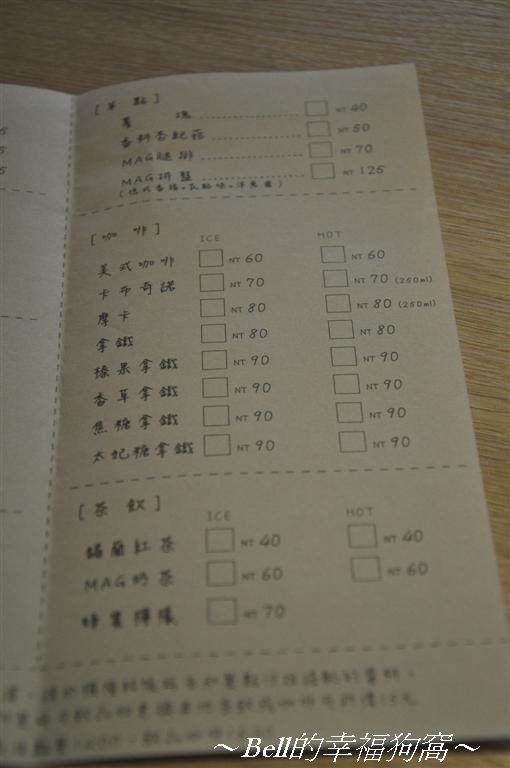 [單點]
薯 塊 NT 40
香料杏鮑菇 NT 50
MAG腿排 NT 70
MAG拼盤 NT 125
[咖 啡] ICE HOT
美式咖啡 NT 60 NT 60
卡布奇諾 NT 70 NT 70 (250ml)
摩卡 NT 80 NT 80 (250ml)
拿鐵 NT 80 NT 80
榛果拿鐵 NT 90 NT 90
香草拿鐵 NT 90 NT 90
焦糖拿鐵 NT 90 NT 90
太妃糖拿鐵 NT 90 NT 90
[茶 飲] ICE HOT
錫蘭紅茶 NT 40 NT 40
MAG奶茶 NT 60 NT 60
蜂蜜檸檬 NT 70
～Bell的幸福狗窩～